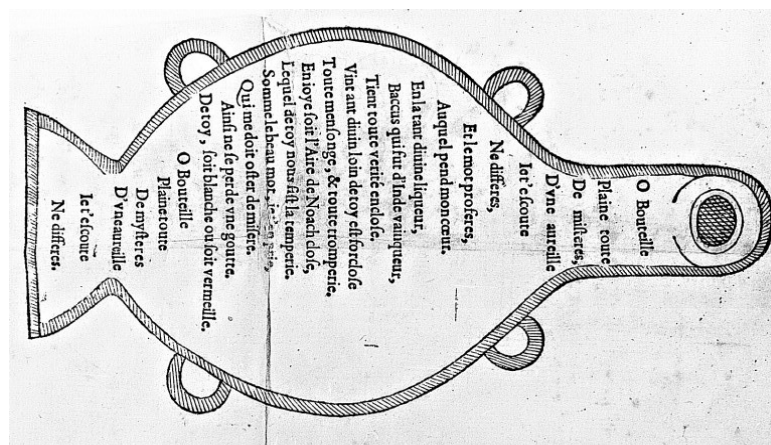 O Bouteille
Plaine toute
De miſteres,
D'vne aureille
Iet'eſcoute
Ne differes,
Et le mot proferes,
Auquel pend mon cœur.
En la tant diuine liqueur,
Baccus qui fut d'Inde vainqueur,
Tient toute verité encloſe.
Vint ant diuin loin de toy eſt forcloſe
Toute menſonge, & toute tromperie.
En ioye ſoit l'Aire de Noach cloſe,
Lequel de toy nous fiſt la temperie.
Somme le beau mot, prie,
Qui me doit oſter de miſere.
Ainſi ne ſe perde vne goutte.
De toy, ſoit blanche ou ſoit vermeille.
O Bouteille
Plaine toute
De myſteres
D'vne aureille
Ie t'eſcoute
Ne differes.